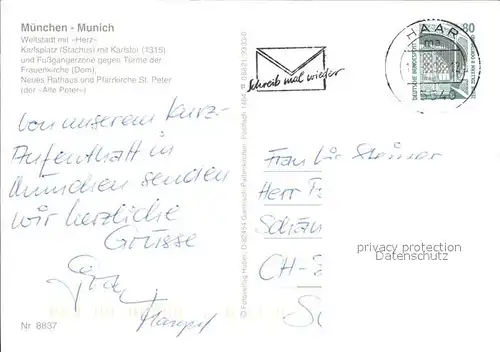 München - Munich
Weltstadt mit «Herz»
Karlsplatz (Stachus) mit Karlstor (1315)
und Fußgängerzone gegen Türme der
Frauenkirche (Dom),
Neues Rathaus und Pfarrkirche St. Peter
(der «Alte Peter»)
HAAR
80
DEUTSCHE BUNDESPOST
Schreib mal wieder
Von unserem Kurz-
Aufenthalt in
München senden
wir herzliche
Grüsse
Frau
Herr
CH-
privacy protection
Datenschutz
© Fotoverlag Huber, D-82454 Garmisch-Partenkirchen, Postfach 1464
Nr 8837